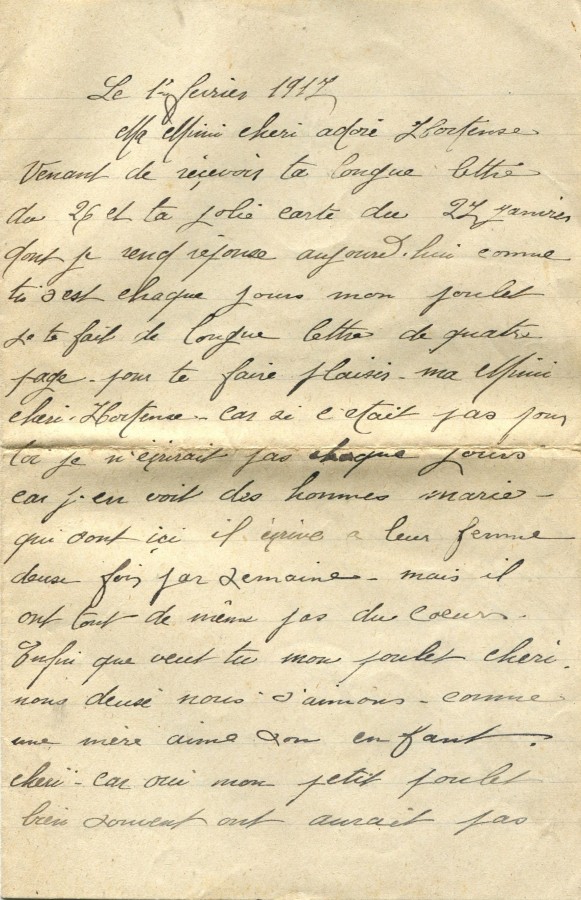 Le 1er fevrier 1917
Ma Mimi cheri adoré Hortense
Venant de reçevoir ta longue lettre
du 26 et ta jolie carte du 27 janvier
dont je rend réponse aujourd'hui comme
tu s'est chaque jours mon poulet
je te fait de longue lettre de quatre
page - pour te faire plaisir - ma Mimi
cheri - Hortense - car si c'etait pas pour
toi je n'ecrirait pas chaque jours
car j-en voit des hommes marie -
qui sont ici il ecrive a leur femme
deuse fois par semaine - mais il
ont tout de même pas du coeurs.
Enfin que veut tu mon poulet cheri.
nous deuse nous s'aimons - comme
une mère aime son enfant.
cheri - car oui mon petit poulet
bien souvent ont aurait pas